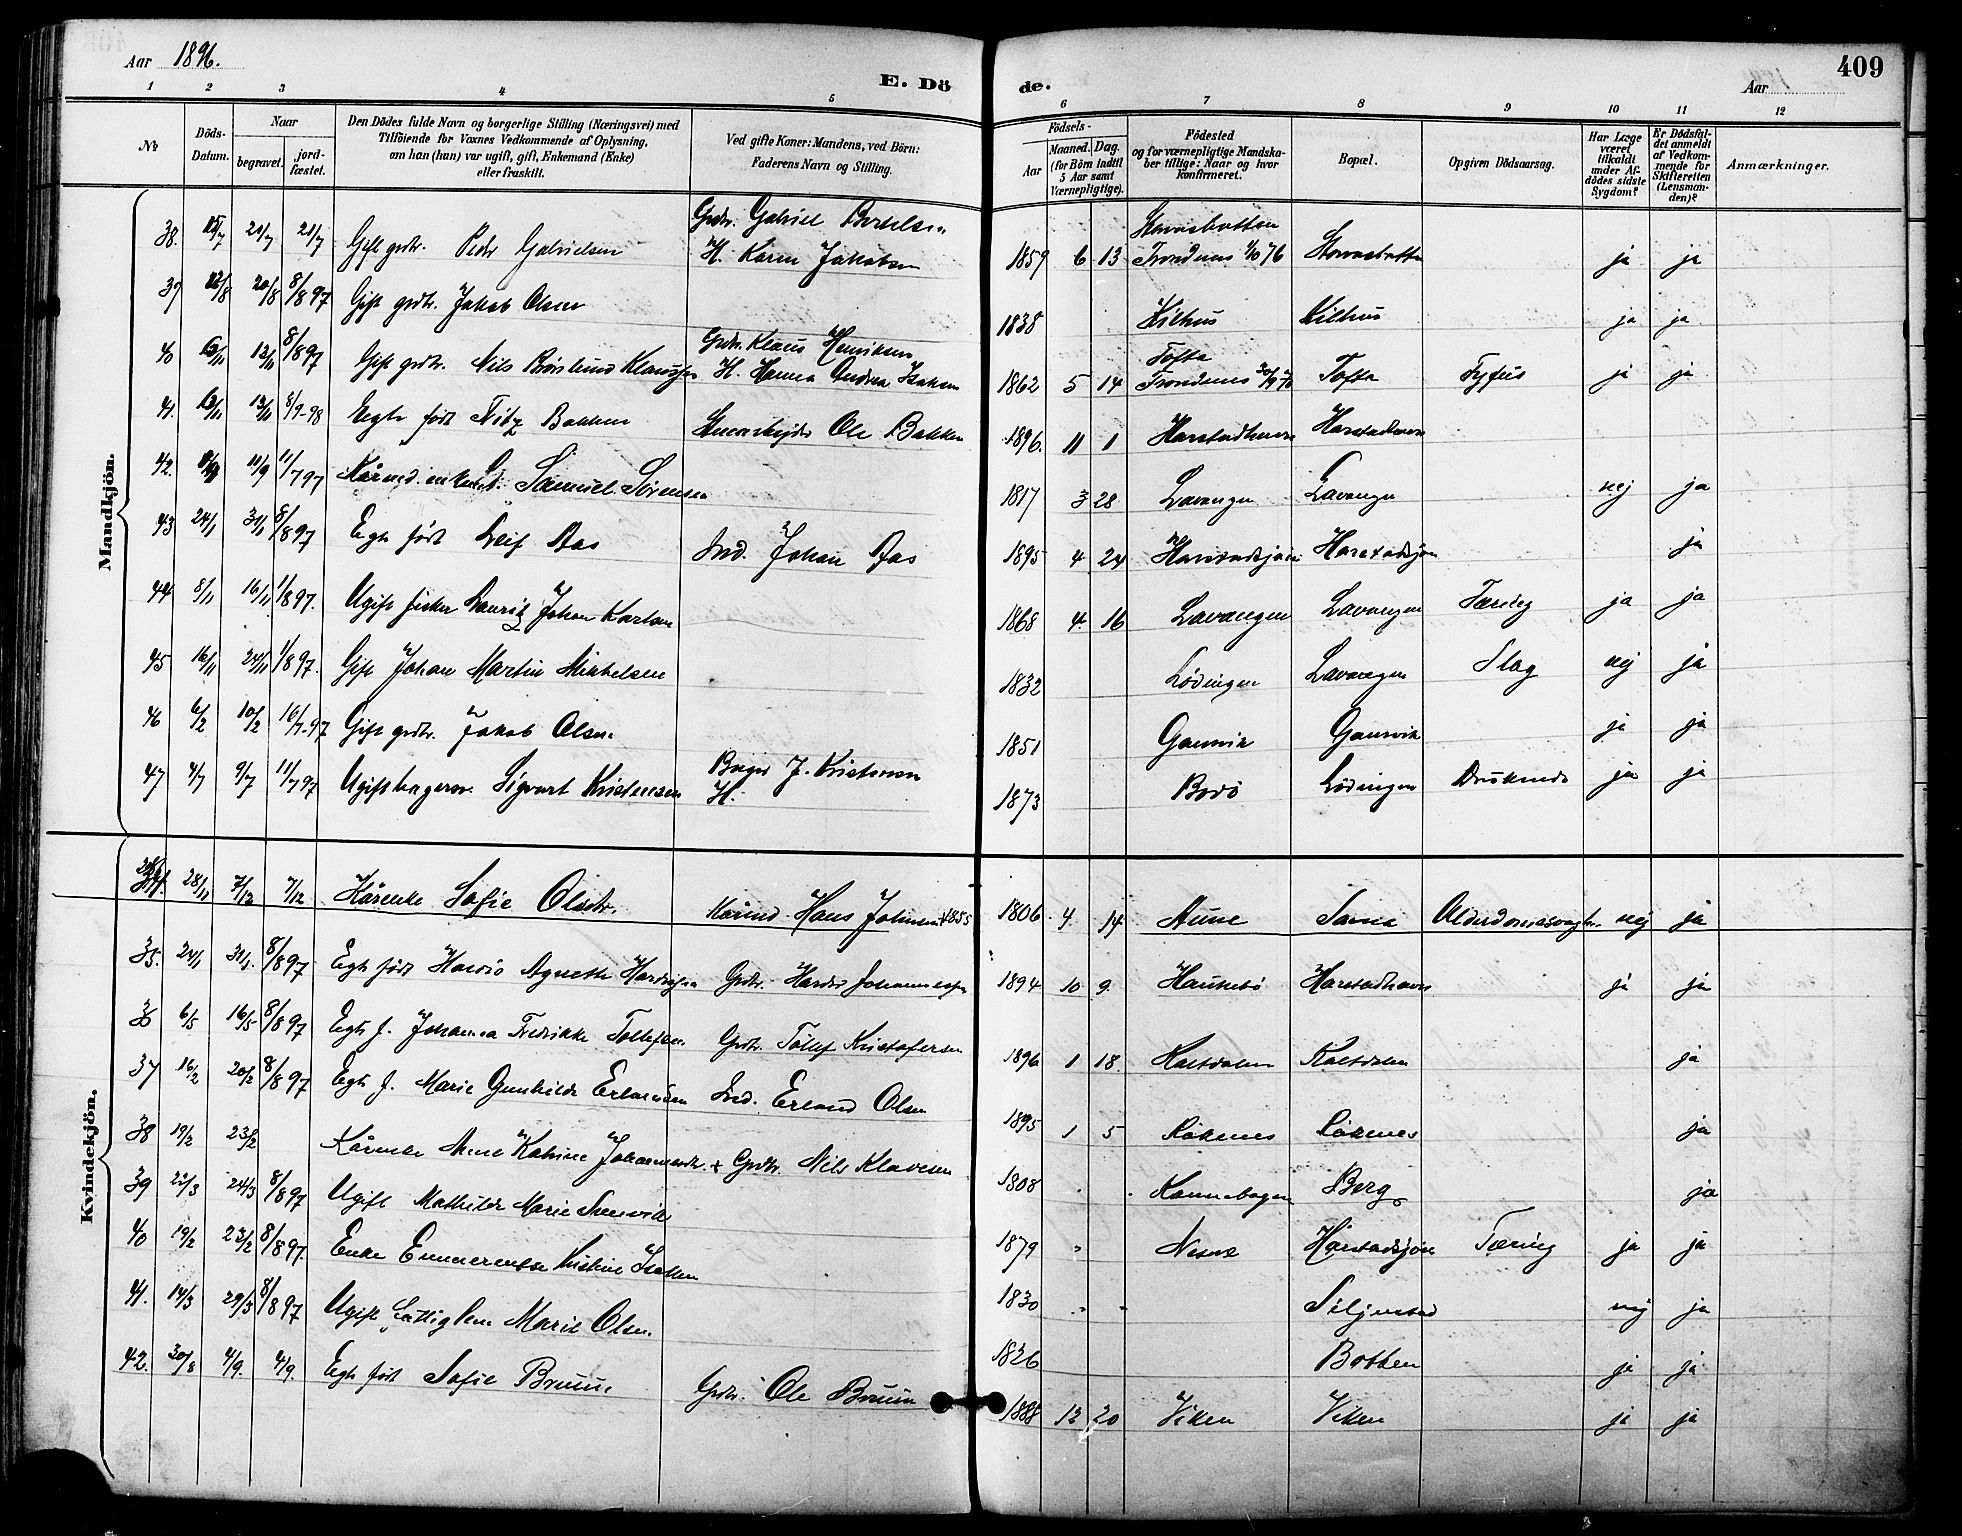 Aar 1896.
E. Dö
1 2 3 4 5
No
Döds-
Datum.
Naar
begravet.
jord-
fæstet.
Den Dödes fulde Navn og borgerlige Stilling (Næringsvei) med
Tilföiende for Voxnes Vedkommende af Oplysning,
om han (hun) var ugift, gift, Enkemand (Enke)
eller fraskilt.
Ved gifte Koner: Mandens, ved Börn:
Faderens Navn og Stilling.
Mandkjön.
38. 15/7 21/7 21/7 Gift grdbr. Peder Gabrielsen Grdbr. Gabriel Bertelsen
H. Karen Jakobsen
39 12/8 20/8 8/8 97 Gift grdbr. Jakob Olsen
40 12/11 8/8 97 Gift grdbr. Nils Klaussen Grdbr. Klaus Henriksen
H. Hanna Andrea Isaksen
41. 12/11 8/9-98 Egte født Nitz Bakken Ole Bakken
42. 11/9 11/7 97 Samuel Sørensen
43 24/1 31/1 8/8 97 Egte født Leif Aas Ind. Johan Aas
44 8/11 16/11 11/8 97. Ugift fisker Lauritz Johan Karlsen
45 16/11 24/11 1/8 97. Gift Johan Martin Mikkelsen
46 6/2 10/2 16/7-97 Gift grdbr. Jakob Olsen
47 4/7 9/7 11/7 97 Ugift bagersv. Sigvart Kristensen Bager J. Kristensen
H.
Kvindekjön.
28/11 7/12 7/12 Kårenke Sofie Olsdtr. Kårmd Hans Johnsen + 1855
35. 24/1 31/1. 8/8 97 Egte født Agnethe Grdbr. Johannessen
36 6/5 16/5 8/8 97 Egte f. Johanna Fredrikke Tollefsen Grdbr. Tollef Kristofersen
37 16/2 20/2 8/8 97 Egte f. Marie Gunhilde Erlandsen Ind. Erland Olsen
38 19/2 23/2 Kårenke Anne Katrine Johannesdtr. + Grdbr. Nils Klavesen
39 21/3 24/3 8/8 97 Ugift Mathilde Marie
40 19/2 23/2 8/8 97. Enke Emmerentse Kristine Isaksen
41. 14/3 29/3 8/8 97 Ugift Fattiglem Marie Olsen.
42. 30/8 4/9. 4/9. Egte født Sofie Bruun Grdbr. Ole Bruun
de.
Aar
409
6 7 8 9 10 11 12
Födsels-
Aar
Maaned. Dag.
(for Börn indtil
5 Aar samt
Værnepligtige).
Födested
og for værnepligtige Mandska-
ber tillige: Naar og hvor
konfirmeret.
Bopæl.
Opgiven Dödsaarsag.
Har Læge
været
tilkaldt
under Af-
dödes sidste
Sygdom?
Er Dödsfal-
det anmeldt
af Vedkom-
mende for
Skifteretten
(Lensman-
den)?
Anmærkninger.
1859 6 13 Storvasbotten
Trondenes 1/10 76 Storvasbotten ja ja
1838 Kilhus Kilhus ja ja
1862 5 14 Tofta
Trondenes Tofta Tyfus ja ja
1896. 11 1 Harstadhavn Harstadhavn
1817 3 28 Lavangen Lavangen nej ja
1895 4 24 Harstadsjøen Harstadsjøen ja
1868 4. 16 Lavangen Lavangen Tæring ja ja
1832 Lødingen Lavangen Slag nej ja
1851 Gausvik Gausvik ja ja
1873 Bodø Lødingen Druknede ja ja
1806. 4. 14 Aune Sama Alderdomssvaghed nej ja
1894 10 9. Haukebø Harstadhavn ja ja
1896 1 18. Kaltdalen Kaltdalen ja
1895 1 5 Røkenes Røkenes ja
1808 . . Kannebogen Berg ja
1879 " Nesne Harstadsjøen Tæring ja ja
1830 " " Siljustad nej ja
1826 Botten ja ja
1888 12 20 Viken Viken ja ja